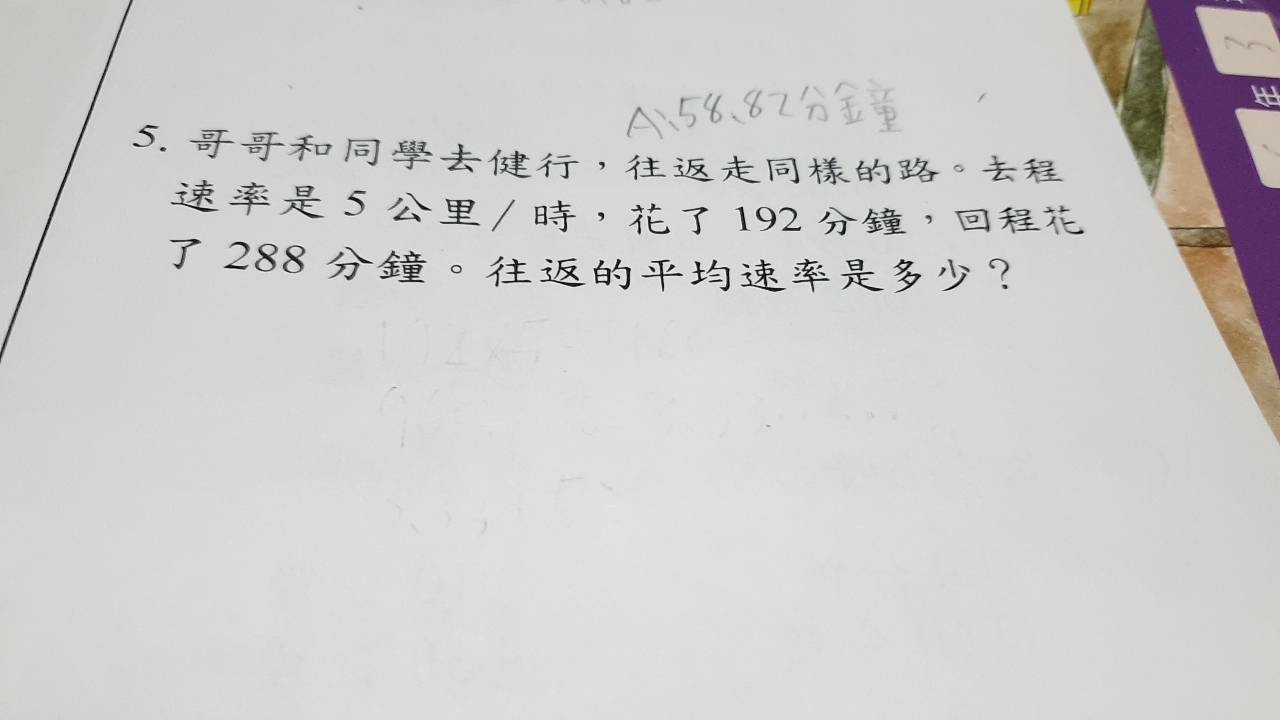 A、58、82分鐘
5. 哥哥和同學去健行，往返走同樣的路。去程
速率是 5 公里／時，花了 192 分鐘，回程花
了 288 分鐘。往返的平均速率是多少？
3
年